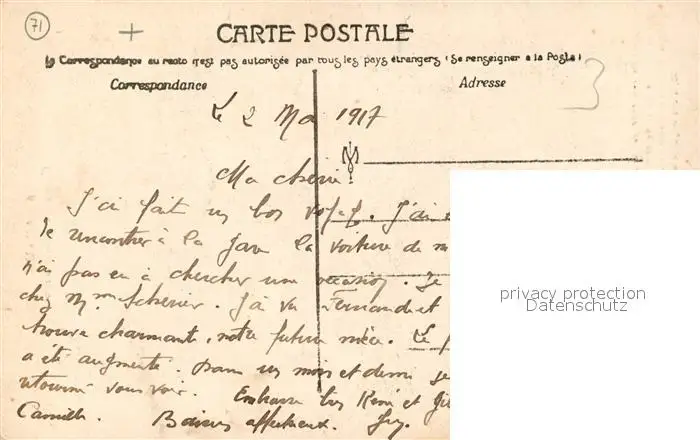 71
CARTE POSTALE
La Correspondance au recto n'est pas autorisée par tous les pays étrangers (Se renseigner à la Poste)
Correspondance
Adresse
3
Le 2 Mai 1917
Ma chérie
J'ai fait un bon voyage. J'ai
rencontrer à la gare la voiture de
n'ai pas eu à chercher une occasion. Je
chez Mme . J'ai vu Fernand et
trouve charmante, notre future nièce. Le
a été augmenté. Dans un mois et demi je
vous voir. Embrasse René et
Camille. Baisers affectueux.
privacy protection
Datenschutz